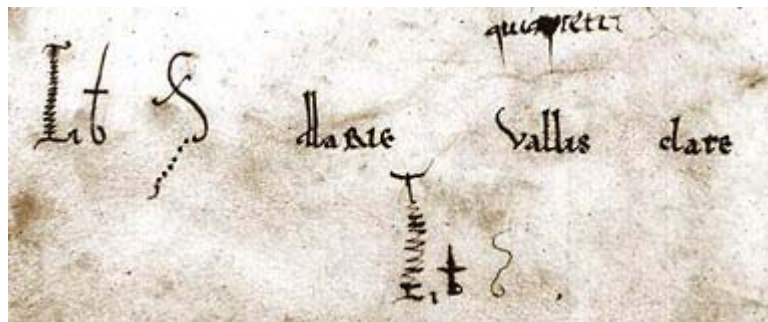 Lib S MARIE vallis clare
Lib S.